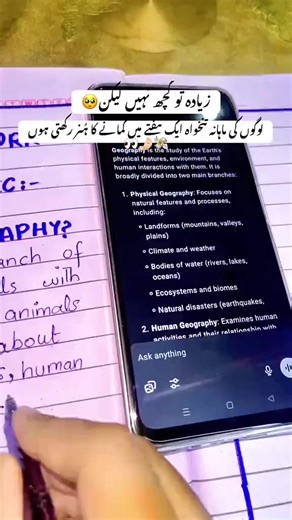 زیادہ تو کچھ نہیں لیکن🥺
لوگوں کی ماہانہ تنخواہ ایک ہفتے میں کمانے کا ہنر رکھتی ہوں
Geography is the study of the Earth's
physical features, environment, and
human interactions with them. It is
broadly divided into two main branches:
1. Physical Geography: Focuses on
natural features and processes,
including:
Landforms (mountains, valleys,
plains)
Climate and weather
Bodies of water (rivers, lakes,
oceans)
Ecosystems and biomes
Natural disasters (earthquakes,
2. Human Geography: Examines human
activities and their relationship with
Ask anything
C:-
APHY?
nch of
ls with
animals
about
, human